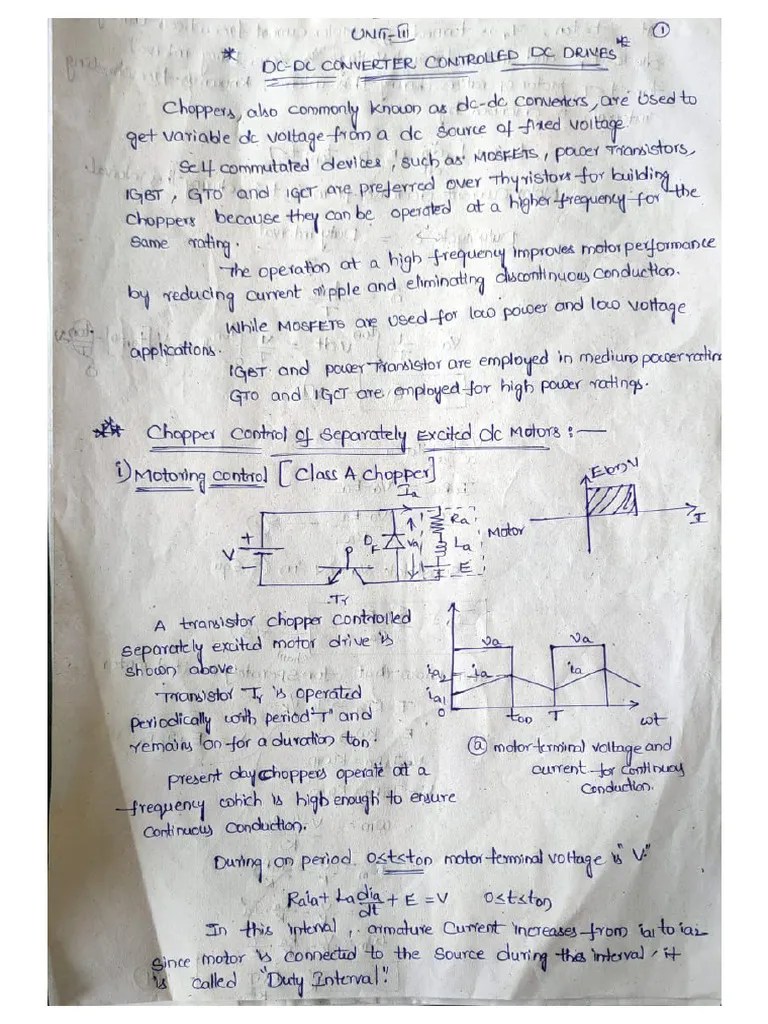 UNIT-II
①
* DC-DC CONVERTER CONTROLLED DC DRIVES *
Choppers, also commonly known as dc-dc converters, are used to
get variable dc voltage from a dc source of fixed voltage.
Self commutated devices, such as MOSFETS, power Transistors,
IGBT, GTO and IGCT are preferred over Thyristors for building
choppers because they can be operated at a higher frequency for the
same rating.
The operation at a high frequency improves motor performance
by reducing current ripple and eliminating discontinuous conduction.
While MOSFETS are used for low power and low voltage
applications.
IGBT and power Transistor are employed in medium power ratin
GTO and IGCT are employed for high power ratings.
** Chopper Control of Separately Excited dc Motors :—
i) Motoring control [Class A chopper]
E or V
I
Ia
+
V
-
P
Tr
DF
Va
Ra
La
E
Motor
A transistor chopper controlled
separately excited motor drive is
shown above.
Transistor Tr is operated
periodically with period "T" and
remains on for a duration ton.
present day choppers operate at a
frequency which is high enough to ensure
continuous conduction.
va
va
ia2
ia
ia
ia1
0
ton
T
wt
ⓐ motor terminal voltage and
current for continuous
conduction.
During, on period 0≤t≤ton motor terminal voltage is "V."
Raia + La dia/dt + E = V 0≤t≤ton
In this interval, armature current increases from ia1 to ia2
Since motor is connected to the source during this interval, it
is called "Duty Interval".